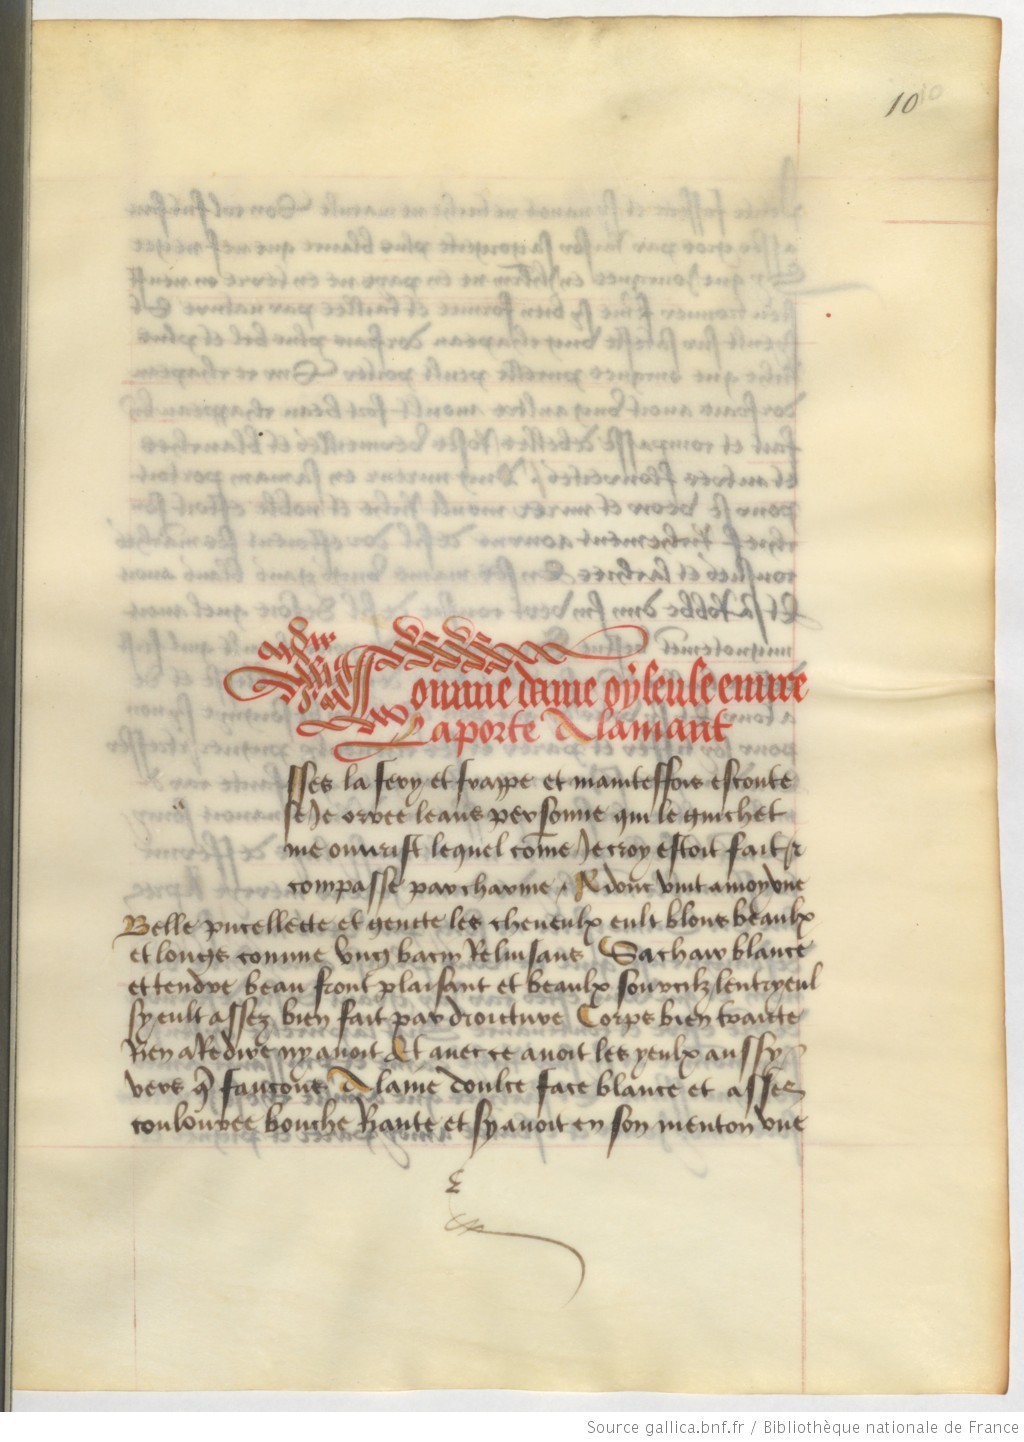 10
Comme dame oyseuse euure
La porte A lamant
sses la fery et frappe et maniteffois escoute
se Je orree leans personne qui le guichet
me ouurist lequel come Je croy estoit fait et
compasse par charme / Adonc vint a moy vne
Belle pucellecte et gente les cheueulx eult blons beaulx
et longs comme vng bacin Reluisans Sa chair blance
et tendre beau front plaisant et beaulx sourcilz lentryeul
sy eult assez bien fait par droicture Corps bien traicte
Rien a Redire ny auoit Et auec ce auoit les yeulx aussy
vers que faucons A laine doulce face blance et assez
coulouree bouche Riante et sy auoit en son menton vne
Source gallica.bnf.fr / Bibliothèque nationale de France